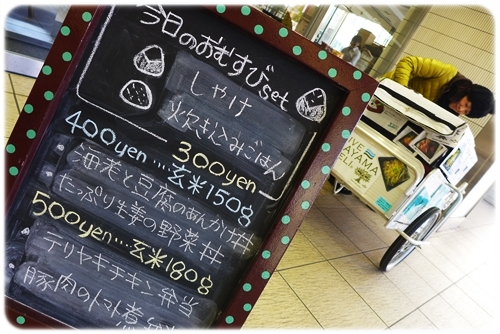 今日のおむすびset
しゃけ
炊き込みごはん
300yen
400yen…玄米150g
海老と豆腐のあんかけ丼
たっぷり生姜の野菜丼
500yen…玄米180g
テリヤキチキン弁当
豚肉のトマト煮
LIVE